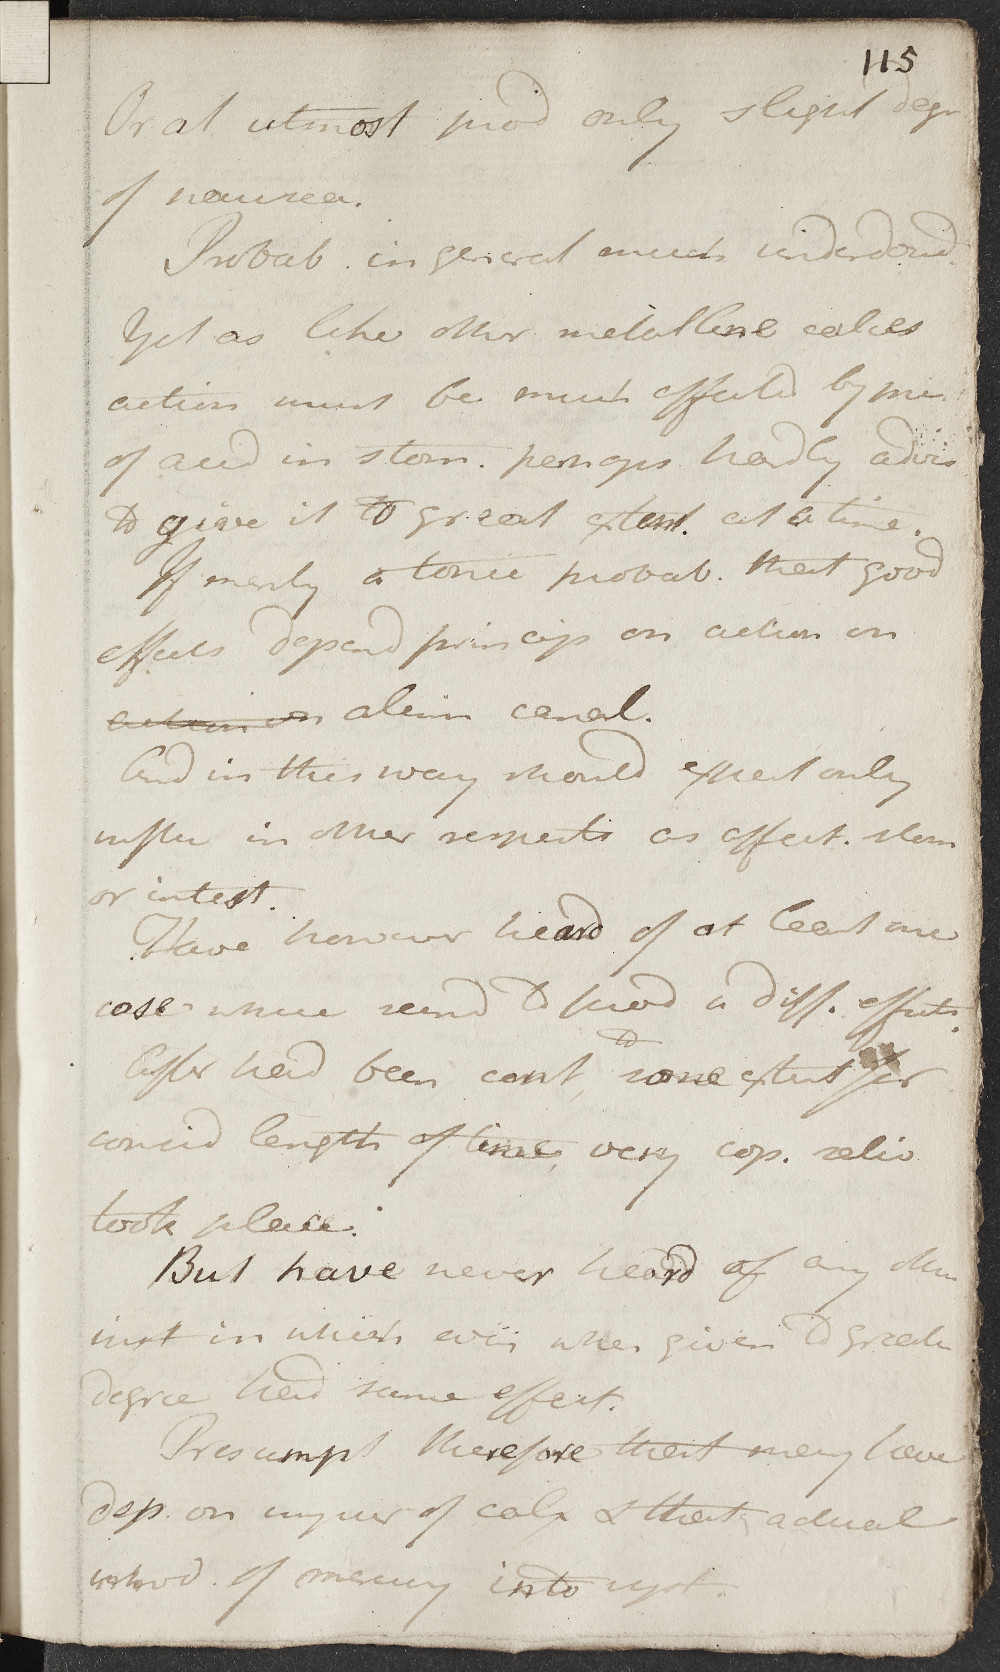 115
Or at utmost prod only slight degr
of nausea.
Probab. in general much underdosed.
Yet as like other metalline calces
action must be much affected by
of acid in stom. perhaps hardly advis
to give it to great extent. at a time.
If merly a tonic probab. that good
effects depend princip on action on
action on alim canal.
And in this way should expect only
in other respects as affect. stom
or intest.
Have however heard of at least one
case where seemd to prod a diff. effects.
After had been cont, to some extent for
consid length of time, very cop. saliv
took place.
But have never heard of any other
inst in which even when given to greater
degree had same effect.
Presumpt therefore that may have
dep. on of calx & that actual
introd. of mercury into syst.